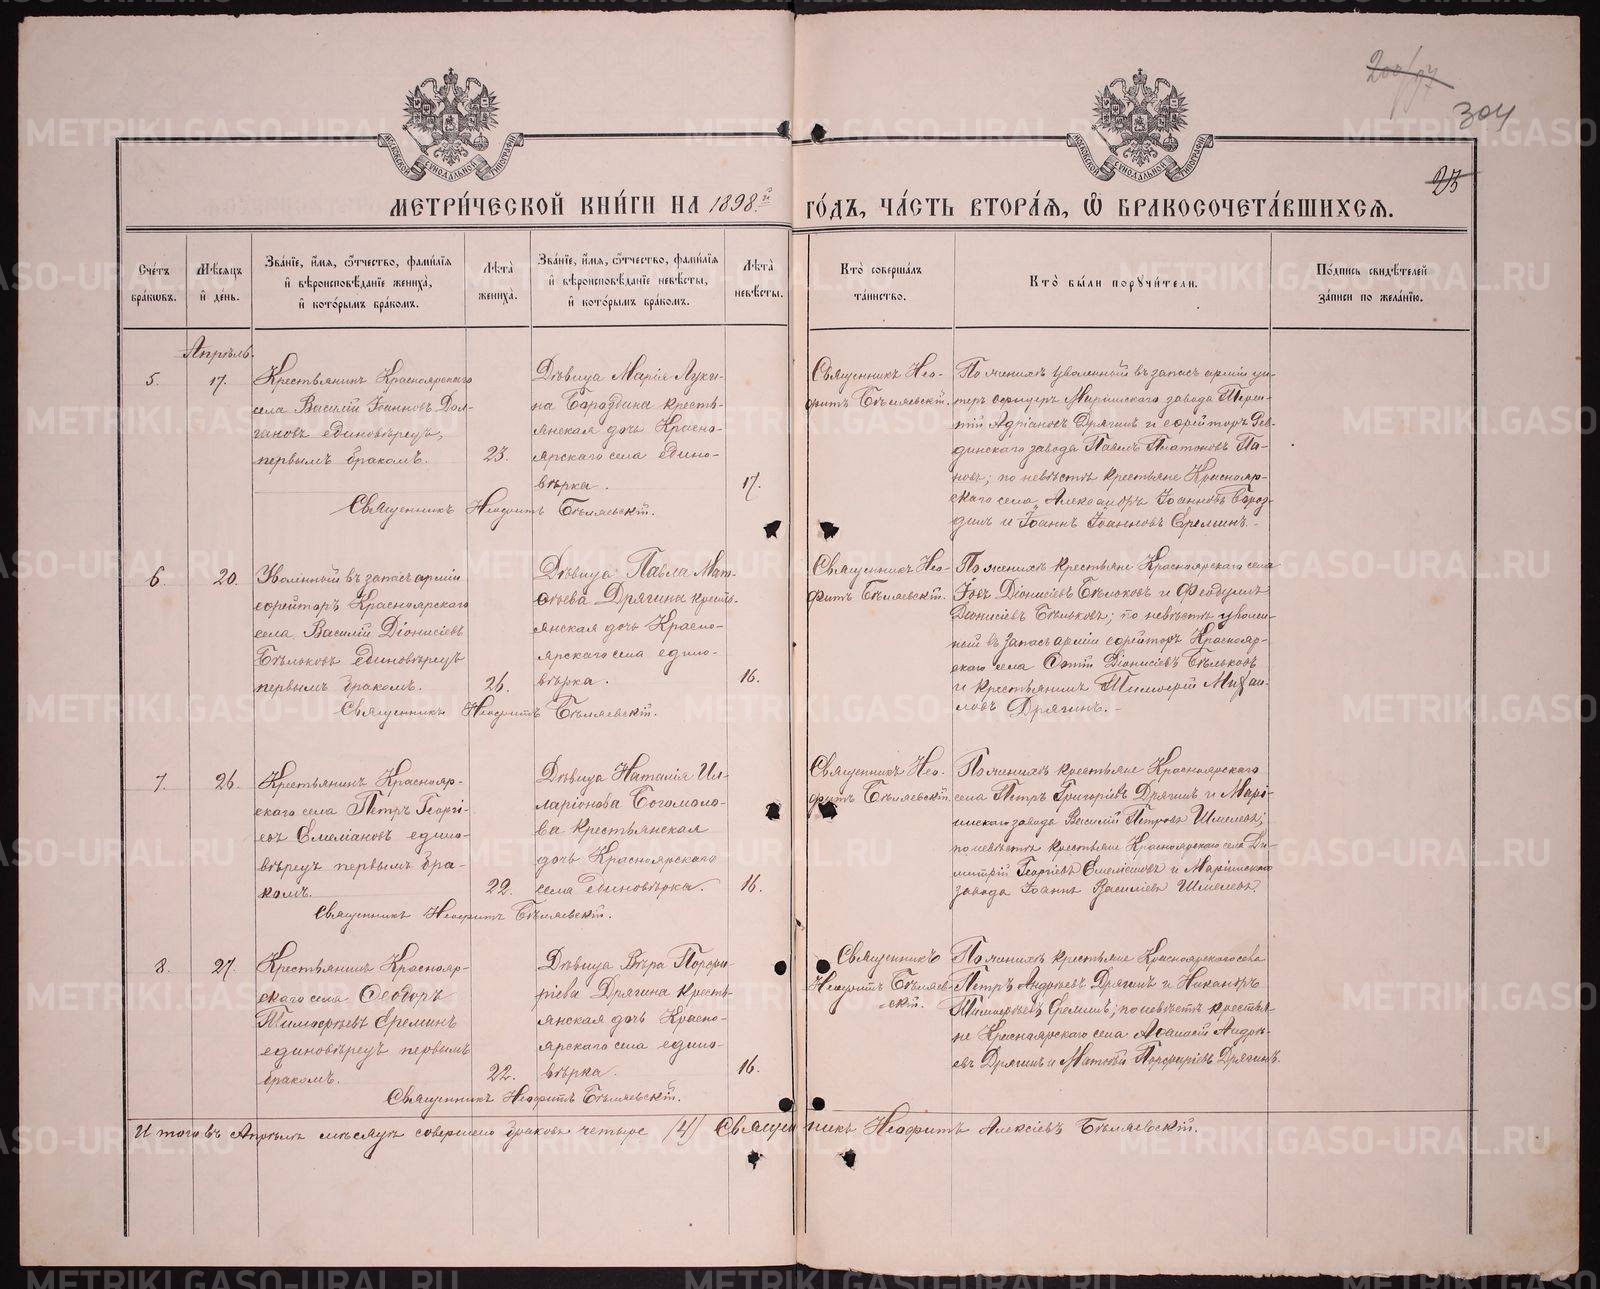 304
23
МЕТРИ́ЧЕСКОЙ КНИ́ГИ НА 1898й ГО́ДЪ, ЧА́СТЬ ВТОРА́Я, Ѿ БРАКОСОЧЕТА́ВШИХСЯ.
Сче́тъ бра́ковъ.
Мѣ́сяцъ и҆ де́нь.
Зва́нїе, и҆́мя, ѻ҆́тчество, фами́лїя и҆ вѣроисповѣ́данїе жениха̀, и҆ кото́рымъ бра́комъ.
Лѣ́та жениха̀.
Зва́нїе, и҆́мя, ѻ҆́тчество, фами́лїя и҆ вѣроисповѣ́данїе невѣ́сты, и҆ кото́рымъ бра́комъ.
Лѣ́та невѣ́сты.
Кто̀ соверша́лъ та́инство.
Кто̀ бы́ли порꙋчи́тели.
По́дпись свидѣ́телей за́писи по жела́нїю.
Апрѣль.
5.
17.
Крестьянинъ Красноярскаго
села Василій Іоанновъ Дол-
гановъ единовѣрецъ,
первымъ бракомъ.
23.
Дѣвица Марія Луки-
на Бороздина кресть-
янская дочь Красно-
ярскаго села едино-
вѣрка.
17.
Священникъ Нео-
фитъ Бѣляевскій.
По женихѣ уволенный въ запасъ арміи ун-
теръ офицеръ Маріинскаго завода Терен-
тій Адріановъ Дрягинъ и ефрейторъ Рев-
динскаго завода Павелъ Платоновъ Па-
новъ; по невѣстѣ крестьяне Краснояр-
скаго села, Александръ Іоанновъ Борoз-
динъ и Іоаннъ Іоанновъ Ереминъ.
Священникъ Неофитъ Бѣляевскій.
6.
20.
Уволенный въ запасъ арміи
ефрейторъ Красноярскаго
села Василій Діонисіевъ
Бѣльковъ единовѣрецъ
первымъ бракомъ.
26.
Дѣвица Павла Мат-
ѳѣева Дрягина кресть-
янская дочь Красно-
ярскаго села едино-
вѣрка.
16.
Священникъ Нео-
фитъ Бѣляевскій.
По женихѣ крестьяне Красноярскаго села
Іовъ Діонисіевъ Бѣльковъ и Ѳеодулъ
Діонисіевъ Бѣльковъ; по невѣстѣ уволен-
ный въ запасъ арміи ефрейторъ Краснояр-
скаго села Фотій Діонисіевъ Бѣльковъ
и крестьянинъ Тимоѳей Михаи-
ловъ Дрягинъ.
Священникъ Неофитъ Бѣляевскій.
7.
26.
Крестьянинъ Краснояр-
скаго села Петръ Георгі-
евъ Емеліановъ едино-
вѣрецъ первымъ бра-
комъ.
22.
Дѣвица Наталія Ил-
ларіонова Богомоло-
ва крестьянская
дочь Красноярскаго
села единовѣрка.
16.
Священникъ Нео-
фитъ Бѣляевскій.
По женихѣ крестьяне Красноярскаго
села Петръ Григоріевъ Дрягинъ и Марі-
инскаго завода Василій Петровъ Шмелевъ;
по невѣстѣ крестьяне Красноярскаго села Ди-
митрій Георгіевъ Емеліановъ и Маріинскаго
завода Іоаннъ Василіевъ Шмелевъ.
Священникъ Неофитъ Бѣляевскій.
8.
27.
Крестьянинъ Краснояр-
скаго села Ѳеодоръ
Тимоѳеевъ Ереминъ
единовѣрецъ первымъ
бракомъ.
22.
Дѣвица Вѣра Порфи-
ріева Дрягина кресть-
янская дочь Красно-
ярскаго села едино-
вѣрка.
16.
Священникъ
Неофитъ Бѣляев-
скій.
По женихѣ крестьяне Красноярскаго села
Петръ Андреевъ Дрягинъ и Никаноръ
Тимоѳеевъ Ереминъ; по невѣстѣ крестья-
не Красноярскаго села Аѳанасій Андре-
евъ Дрягинъ и Матѳей Порфиріевъ Дрягинъ
Священникъ Неофитъ Бѣляевскій.
Итого въ Апрѣлѣ мѣсяцѣ совершено браковъ четыре /4/ Священникъ Неофитъ Алексіевъ Бѣляевскій.
METRIKI.GASO-URAL.RU